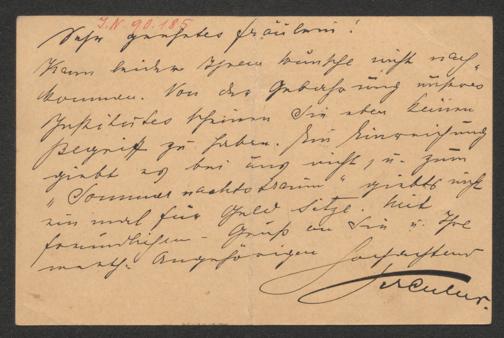 I.N. 90.185
Sehr geehrtes Fräulein!
Kann leider Ihrem Wunsche nicht nach-
kommen. Von der Gebahrung unseres
Institutes scheinen Sie eben keinen
Begriff zu haben. Ein Einreichung
giebt es bei uns nicht, u. zum
"Sommernachtstraum" giebts nicht
einmal für Geld Sitze. Mit
freundlichem Gruß an Sie u. Ihre
werth. Angehörigen
Hochachtend